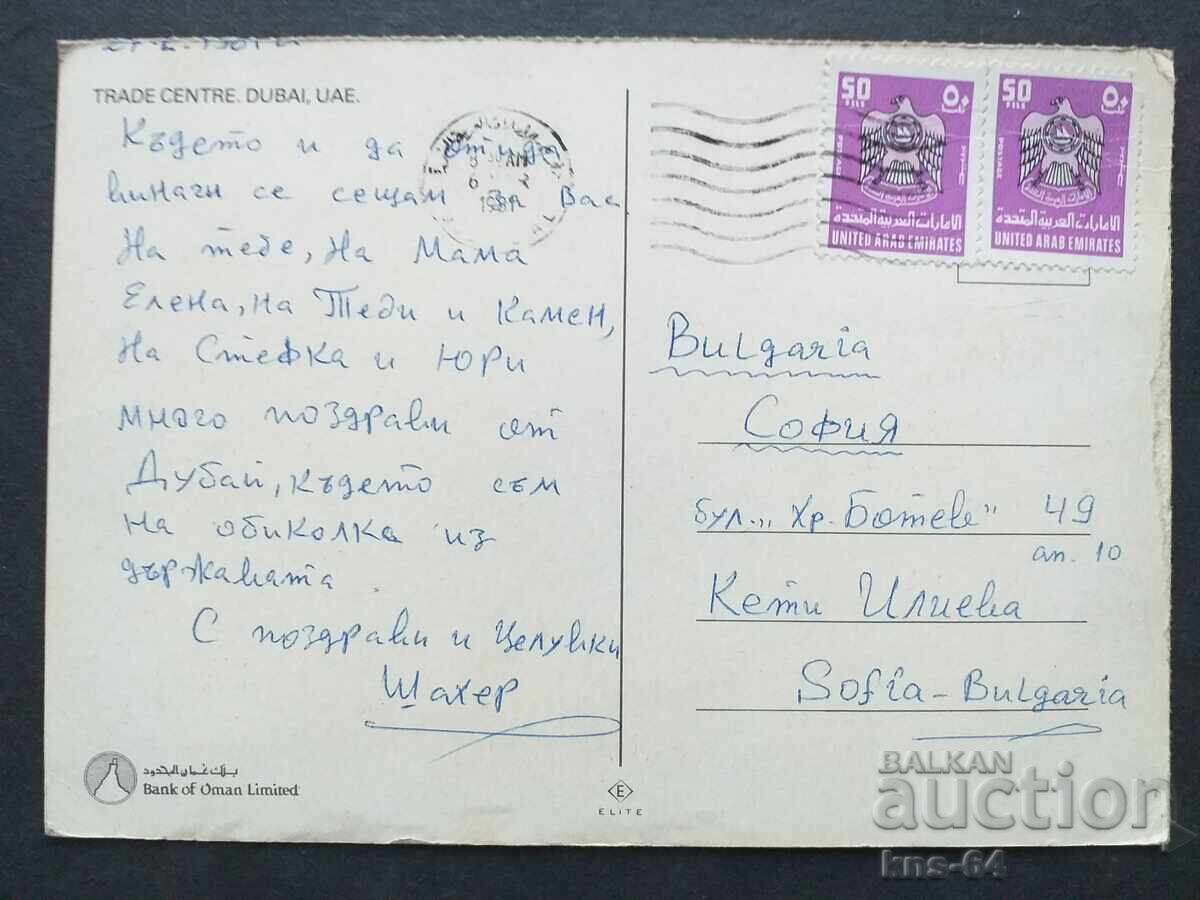 TRADE CENTRE. DUBAI, UAE.
Където и да отида
винаги се сещам за Вас
На тебе, на Мама
Елена, на Теди и Камен,
на Стефка и Юри
много поздрави от
Дубай, където съм
на обиколка из
държавата.
С поздрави и целувки
Шахер
بنك عمان المحدود
Bank of Oman Limited
E
ELITE
8 30 AM
6 2
1981
50
FILS
٥٠
فلس
POSTAGE
بريد
الامارات العربية المتحدة
UNITED ARAB EMIRATES
50
FILS
٥٠
فلس
POSTAGE
بريد
الامارات العربية المتحدة
UNITED ARAB EMIRATES
Bulgaria
София
бул. „Хр. Ботев" 49
ап. 10
Кети Илиева
Sofia - Bulgaria
BALKAN
auction
kns-64